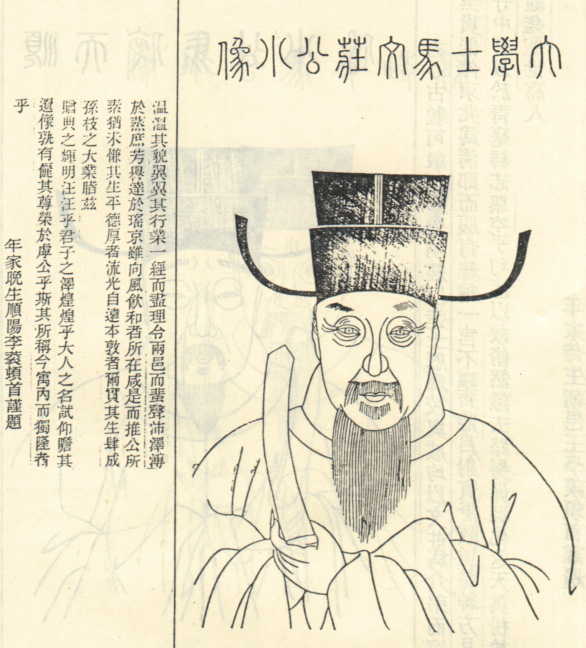 大學士馬文莊公小像
溫溫其貌翼翼其行業一經而盡理令兩邑而蜚聲沛澤溥
於蒸庶芳譽達於瑤京雖向風飲和者所在咸是而推公所
素猶未慊其生平德厚者流光自遠本敦者爾貫其生肆成
孫枝之大業勝茲
贈典之輝明汪汪乎君子之澤煌煌乎大人之名試仰瞻其
遺像孰有儷其尊榮於虖公乎斯其所稱今寓內而獨隆者
乎
年家晚生順陽李蓘頓首謹題